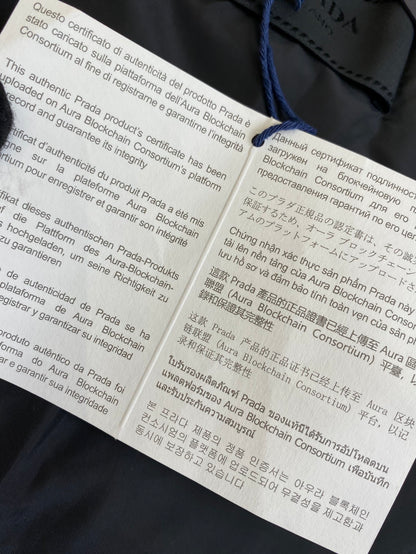 Questo certificato di autenticità del prodotto Prada è
stato caricato sulla piattaforma dell'Aura Blockchain
Consortium al fine di registrarne e garantirne l'integrità
This authentic Prada product's certificate has been
uploaded on Aura Blockchain Consortium's platform
record and guarantee its integrity
certificat d'authenticité du produit Prada a été mis
ligne sur la plateforme Aura Blockchain
ortium pour enregistrer et garantir son intégrité
ifikat dieses authentischen Prada-Produkts
f die Plattform des Aura-Blockchain-
s hochgeladen, um seine Richtigkeit zu
zu garantieren
de autenticidad de Prada se ha
plataforma de Aura Blockchain
registrar y garantizar su integridad
produto autêntico da Prada foi
orma do Aura Blockchain
ar e garantir sua integridade
PRADA
Данный сертификат подлинност
загружен на блокчейновую
Blockchain Consortium для его
предоставления гарантий по его це
このプラダ正規品の認定書は、その誠
保証するため、オーラ ブロックチェー
アムのプラットフォームにアップロードさ
Chứng nhận xác thực sản phẩm Prada này
tải lên nền tảng của Aura Blockchain Cons
lưu hồ sơ và đảm bảo tính toàn vẹn của sản ph
這款 Prada 產品的正品證書已經上傳至 Aura 區
聯盟 (Aura Blockchain Consortium) 平臺，以
錄和保證其完整性
这款 Prada 产品的正品证书已经上传至 Aura 区块
链联盟 (Aura Blockchain Consortium) 平台，以记
录和保证其完整性
ใบรับรองผลิตภัณฑ์ Prada ของแท้นี้ได้รับการอัปโหลดบน
แพลตฟอร์มของ Aura Blockchain Consortium เพื่อบันทึก
และรับประกันความสมบูรณ์
본 프라다 제품의 정품 인증서는 아우라 블록체인
컨소시엄의 플랫폼에 업로드되어 무결성을 제고함과
동시에 보장하고 있습니다